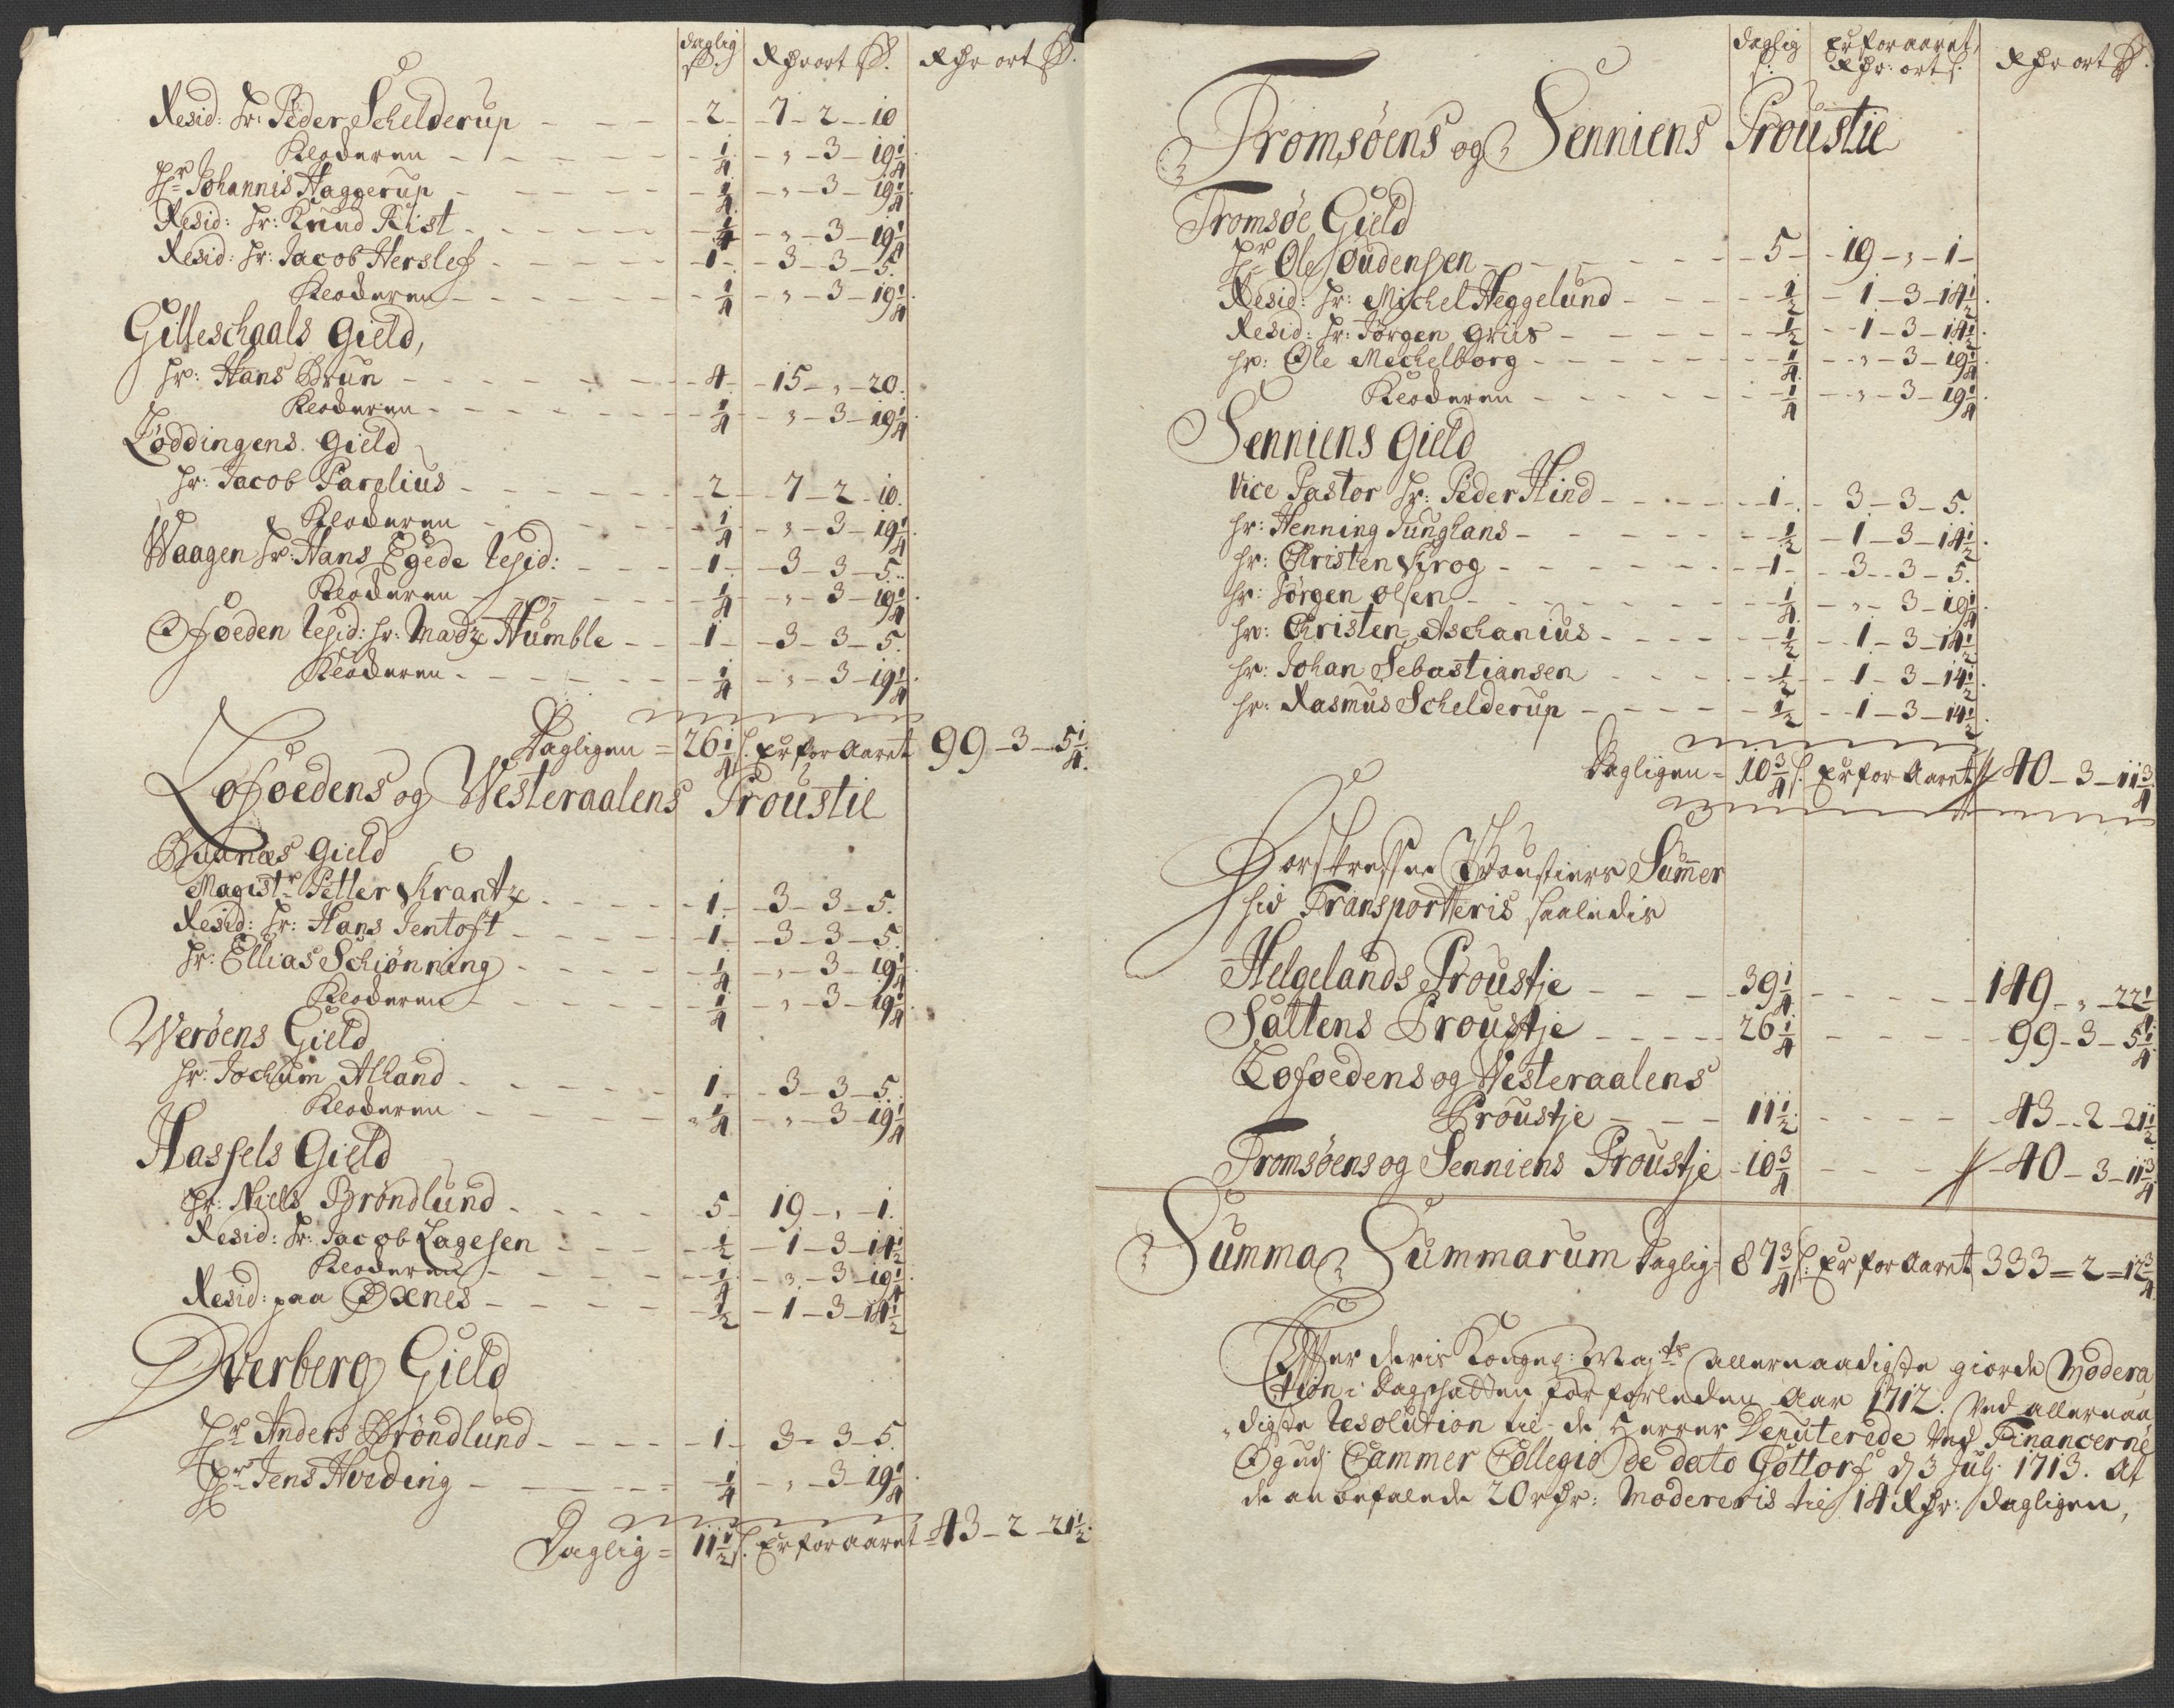 daglig
ß. Rdr ort ß. Rdr ort ß.
Resid: Hr: Peder Schelderup 2 7 - 2 - 10
Klockeren 1/4 " - 3 - 19 1/4
Hr Johannis Haggerup 1/4 " - 3 - 19 1/4
Resid: Hr: Knud Rist 1/4 " - 3 - 19 1/4
Resid: Hr: Jacob Herslef 1 3 - 3 - 5
Klockeren 1/4 " - 3 - 19 1/4
Gilleschaals Gield,
Hr: Hans Brun 4 15 - " - 20
Klockeren 1/4 " - 3 - 19 1/4
Loddingens Gield
Hr: Jacob Parelius 2 7 - 2 - 10
Klockeren 1/4 " - 3 - 19 1/4
Waagen Hr: Hans Egede Resid: 1 3 - 3 - 5
Klockeren 1/4 " - 3 - 19 1/4
Ofoeden Resid: Hr: Madz Humble 1 3 - 3 - 5
Klockeren 1/4 " - 3 - 19 1/4
Dagligen = 26 1/4 ß. Er for Aaret 99 - 3 - 5 1/4
Lofoedens og Westeraalens Proustie
Buxnæs Gield
Magistr Petter Krantz 1 3 - 3 - 5
Resid: Hr: Hans Jentoft 1 3 - 3 - 5
Hr: Ellias Schiønning 1/4 " - 3 - 19 1/4
Klockeren 1/4 " - 3 - 19 1/4
Werøens Gield
Hr: Jochum Alland 1 3 - 3 - 5
Klockeren 1/4 " - 3 - 19 1/4
Hassels Gield
Hr: Niels Brøndlund 5 19 - " - 1
Resid: Hr: Jacob Lagesen 1/2 1 - 3 - 14 1/2
Klockeren 1/4 " - 3 - 19 1/4
Resid: paa Øxnes 1/2 1 - 3 - 14 1/2
Dverberg Gield
Hr Anders Brøndlund 1 3 - 3 - 5
Hr Jens Hveding 1/4 " - 3 - 19 1/4
Daglig = 11 1/2 ß. Er for aaret 43 - 2 - 21 1/2
daglig Er for aaret
ß: Rdr: ort ß: Rdr ort ß.
Tromsøens og Senniens Proustie
Tromsøe Gield
Hr Ole Joudensen 5 19 - " - 1
Resid: Hr: Michel Heggelund 1/2 1 - 3 - 14 1/2
Resid: Hr: Jørgen Griis 1/2 1 - 3 - 14 1/2
Hr: Ole Mechelborg 1/4 " - 3 - 19 1/4
Klockeren 1/4 " - 3 - 19 1/4
Senniens Gield
Vice Pastor Hr: Peder Hind 1 3 - 3 - 5
Hr: Henning Junghans 1/2 1 - 3 - 14 1/2
Hr: Christen Krog 1 3 - 3 - 5
Hr: Jørgen Olsen 1/4 " - 3 - 19 1/4
Hr: Christen Aschanius 1/2 1 - 3 - 14 1/2
Hr: Johan Sebastiansen 1/2 1 - 3 - 14 1/2
Hr: Rasmus Schelderup 1/2 1 - 3 - 14 1/2
Dagligen = 10 3/4 ß. Er for Aaret 40 - 3 - 11 3/4
Proustiers Summer
hid Transporteris saaledis
Helgelands Proustje 39 1/4 149 - " - 22 1/4
Saltens Proustje 26 1/4 99 - 3 - 5 1/4
Lofoedens og Westeraalens
Proustje 11 1/2 43 - 2 - 21 1/2
Tromsøens og Senniens Proustje 10 3/4 40 - 3 - 11 3/4
Summa Summarum Daglig 87 3/4 ß. Er for Aaret 333 = 2 = 12 3/4
Efter deris Kongel: Maj:ts allernaadigste giorde Modera
tion i Dagskatten for forleden Aar 1712. Ved allernaa
digste Resolution til de Herrer Deputerede Ved Financerne
Og udj Cammer Collegio de dato Gottorf d 3 Julj 1713. At
de anbefalede 20 rdr: Modereris til 14 Rdr: dagligen,